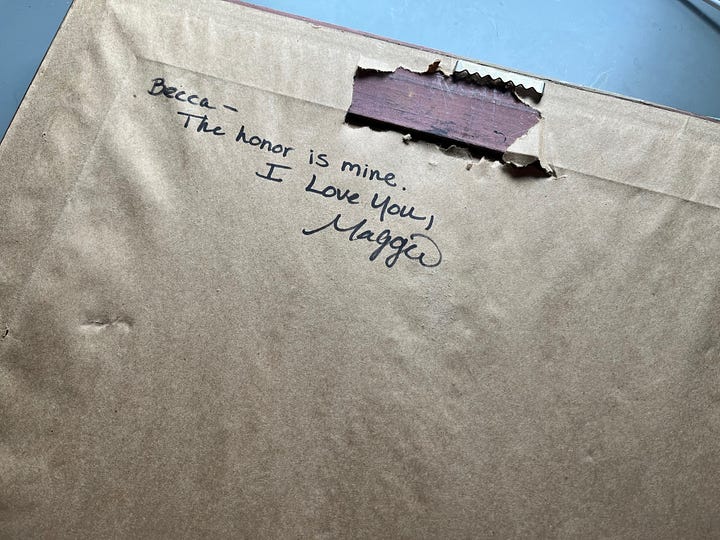 Becca –
The honor is mine.
I Love You,
Maggie